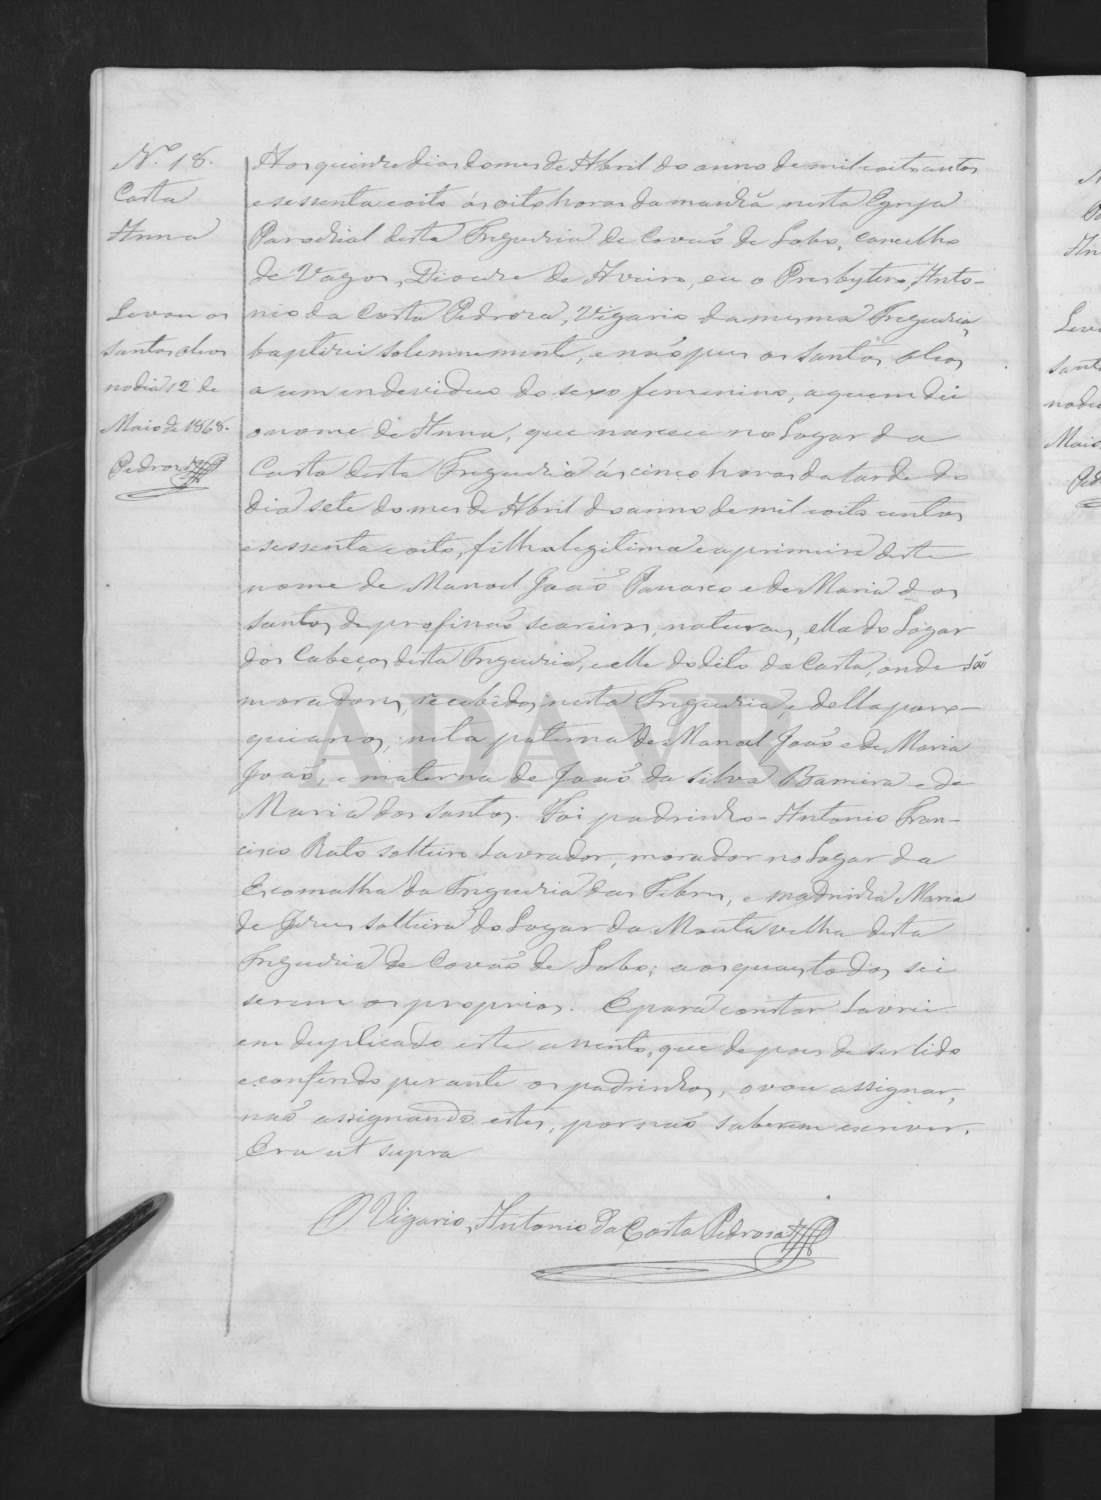 N.º 18.
Costa
Anna
Levou os
santos oleos
no dia 12 de
Maio de 1868.
Pedroza
Aos quinze dias do mes de Abril do anno de mil oito centos
e sessenta e oito ás oito horas da manhã nesta Egreja
Parochial desta Freguezia de Covaõ do Lobo, Concelho
de Vagos, Diocese de Aveiro, eu o Presbytero, Anto-
nio da Costa Pedroza, Vigario da mesma Freguezia,
baptizei solemnemente, e naõ pus os santos oleos
a um endeviduo do sexo femenino, a quem dei
o nome de Anna, que nasceu no Logar da
Costa desta Freguezia ás cinco horas da tarde do
dia sete do mes de Abril do anno de mil oito centos
e sessenta e oito, filha legitima e a primeira deste
nome de Manoel Joaõ Panasco e de Maria dos
Santos de profissaõ seareiros, naturaes, ella do Logar
dos Cabeços desta Freguezia, e elle do dito da Costa, onde saõ
moradores, recebidos nesta Freguezia, e della paro-
quianos, neta paterna de Manoel Joaõ e de Maria
Joaõ, e materna de Joaõ da Silva e de
Maria dos Santos. Foi padrinho Antonio Fran-
cisco Rato solteiro Lavrador, morador no Logar da
Escomalha da Freguezia das Febres, e madrinha Maria
de Jezus solteira do Logar da Mouta velha desta
Freguezia de Covaõ do Lobo; aos quaes todos sei
serem os proprios. E para constar lavrei
em duplicado este assento, que depois de ser lido
e conferido perante os padrinhos, o vou assignar,
naõ assignando estes, por naõ saberem escrever.
Era ut supra
O Vigario, Antonio da Costa Pedroza
ADAVR